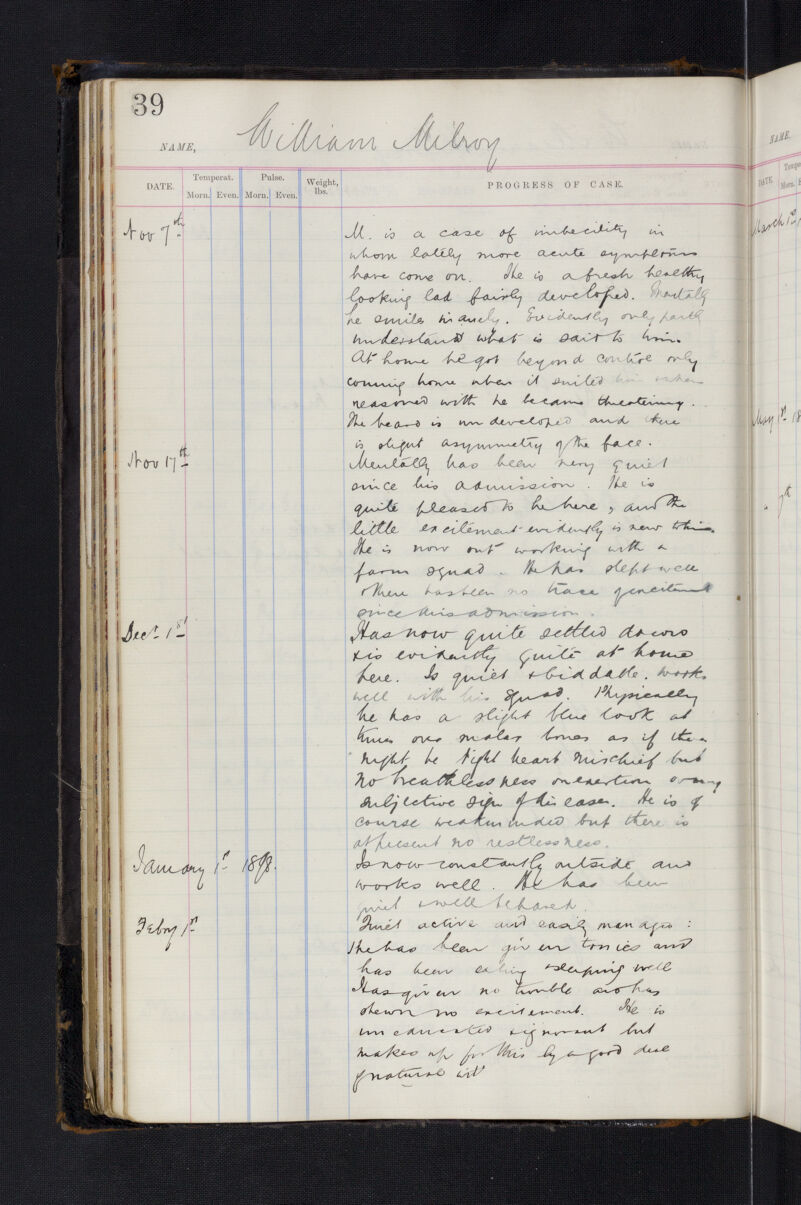 39
NAME, William Milroy
DATE. Temperat. Morn. Even. Pulse. Morn. Even. Weight, lbs. PROGRESS OF CASE.
Nov 7th M. is a case of imbecility in
whom lately more acute symptoms
have come on. He is a fresh healthy
looking lad fairly developed. Mentally
he smiles inanely. Evidently only partly
understands what is said to him.
At home he got beyond control only
coming home when it suited him when
reasoned with he became threatening.
The beard is undeveloped and there
is slight asymmetry of the face.
Nov 17th Mentally has been very quiet
since his admission. He is
quite pleased to be here, and the
little excitement evidently is new to him.
He is now out working with a
farm squad. He has slept well
& there has been no trace of excitement
since his admission.
Decr 1st Has now quite settled down
& is evidently quite at home
here. Is quiet & biddable. Works
well with his squad. Physically
he has a slight blue look at
times over malar bones as if there
might be right heart mischief but
no breathlessness on exertion or any
subjective sign of disease. He is of
course weakminded but there is
at present no restlessness.
January 1st 1898. Is now constantly outside and
works well. He has been
quiet & well behaved.
Febry 1st Quiet active and easily managed:
He has been given tonics and
has been eating & sleeping well
Has given no trouble and has
shewn no excitement. He is
uneducated & ignorant but
makes up for this by a good deal
of natural wit
NAME.
DATE. Morn.
March 1st
May 1st 18
" 9th